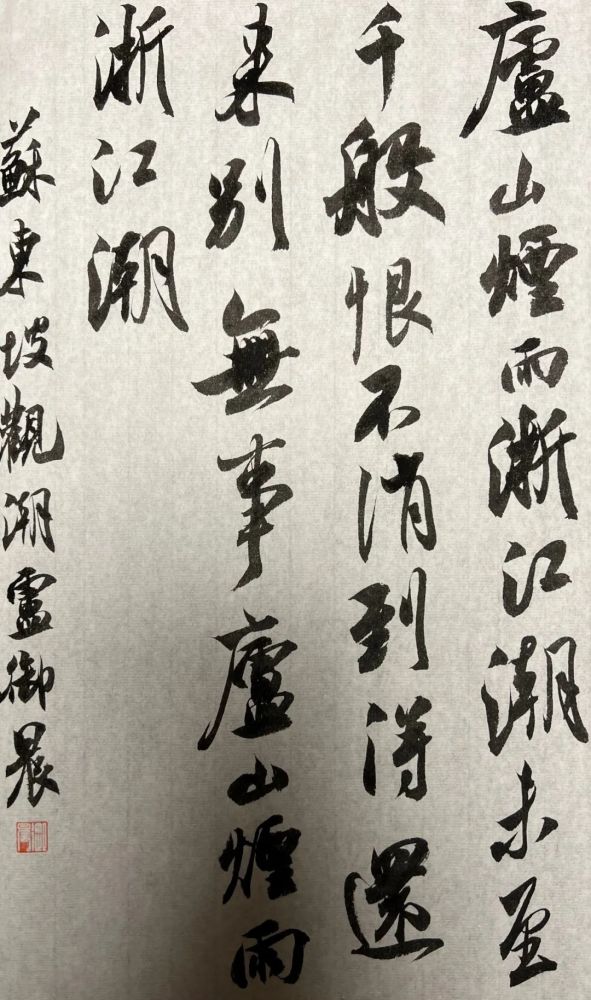 廬山煙雨浙江潮未至
千般恨不消到得還
來別無事廬山煙雨
浙江潮
蘇東坡觀潮盧御晨